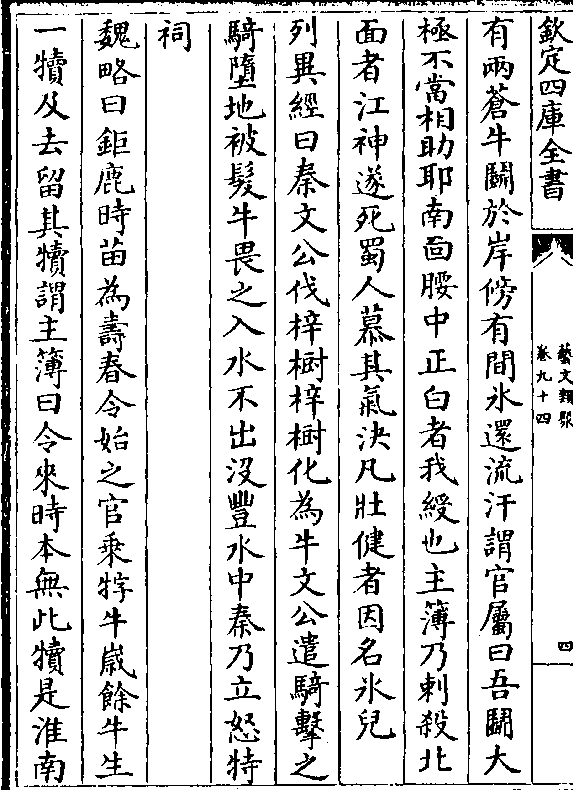 欽定四庫全書
藝文類聚
卷九十四
四
有兩蒼牛鬭於岸傍有間氷還流汗謂官屬曰吾鬭大
極不當相助耶南靣腰中正白者我綬也主簿乃刺殺北
面者江神遂死蜀人慕其氣決凡壯健者因名氷兒
列異經曰秦文公伐梓樹梓樹化為牛文公遣騎擊之
騎墮地被髮牛畏之入水不出沒豐水中秦乃立怒特
祠
魏略曰鉅鹿時苗為壽春令始之官乘牸牛歲餘牛生
一犢及去留其犢謂主簿曰令來時本無此犢是淮南